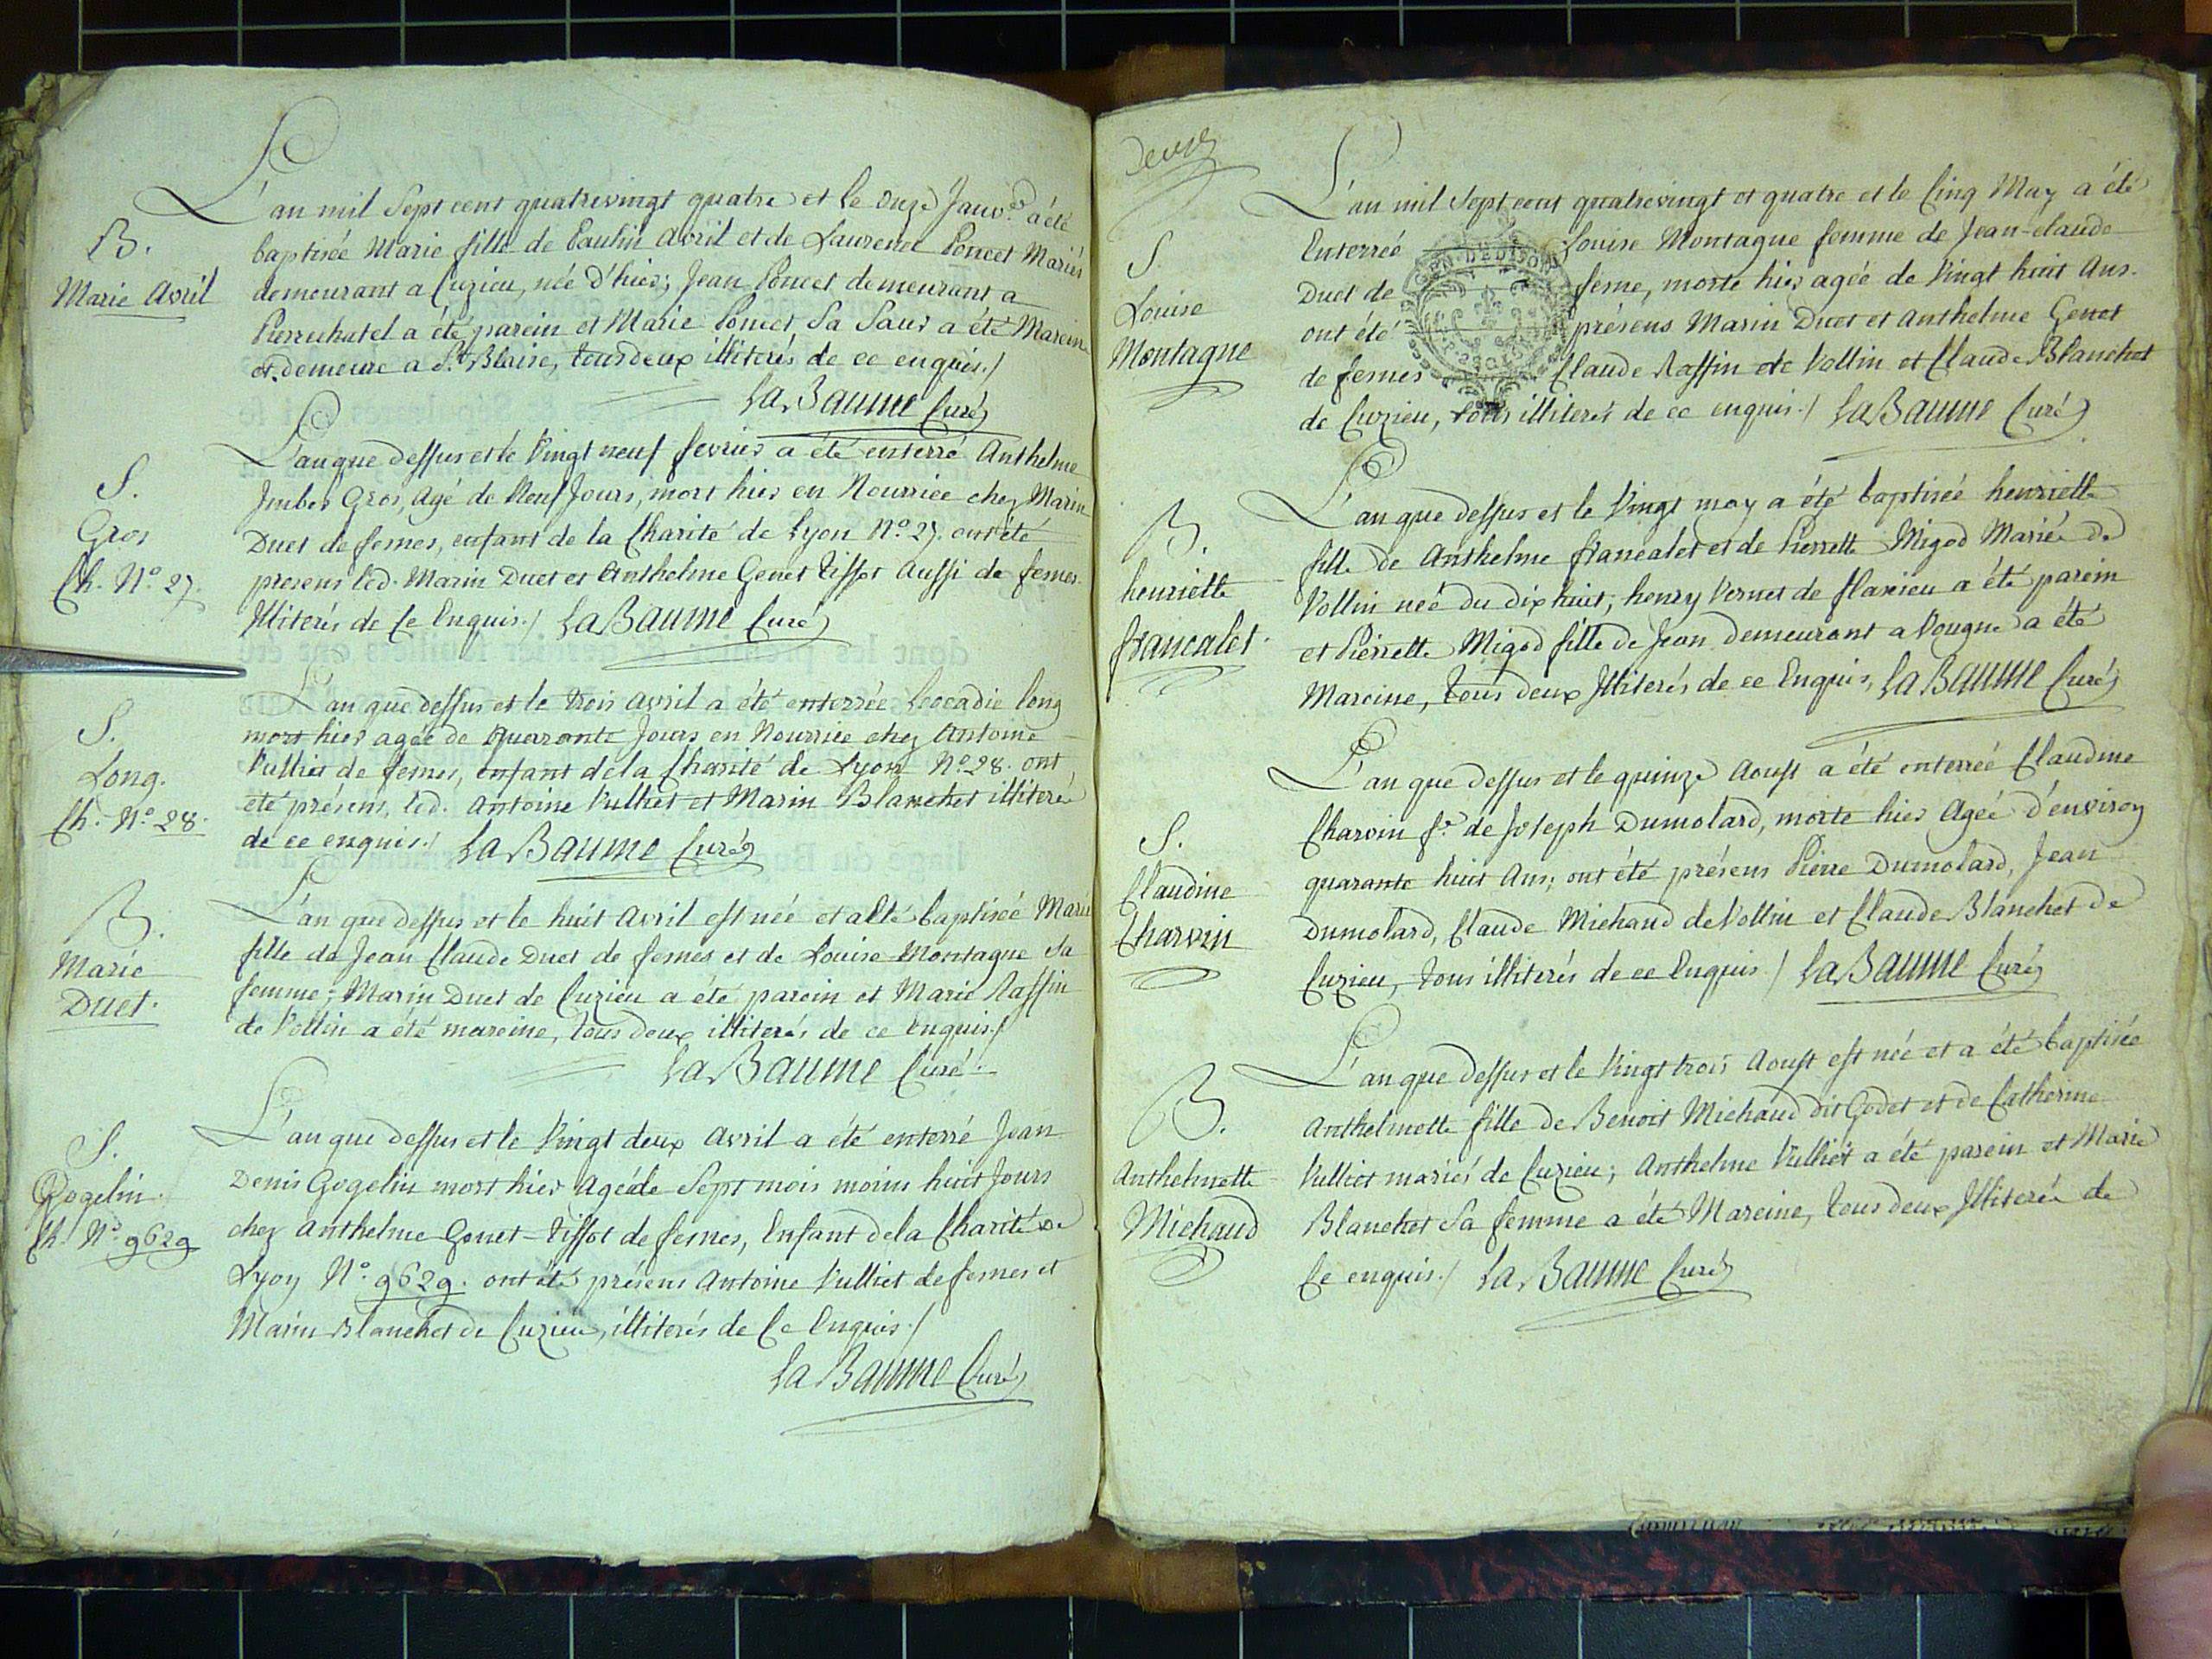 L'an mil Sept cent quatrevingt quatre et le onze Janv.er a été
B.
baptisée Marie fille de Paulin Avril et de Laurence Poncet Mariés
Marie Avril
demeurant a Cuzieu, née d'hier; Jean Poncet demeurant a
Pierrechatel a été parein et Marie Poncet Sa Sœur a été Mareine
et demeure a St. Blaise, tous deux illiterés de ce enquis./
La Baume Curé
L'an que dessus et le Vingt neuf fevrier a été enterré Anthelme
S.
Gros
Ch. N.o 27.
Imber Gros, Agé de Neuf Jours, mort hier en Nourrice chez Marin
Duet de fernes, enfant de la Charité de Lyon N.o 27. ont été
presens led. Marin Duet et Anthelme Genet Tissot Aussi de fernes.
Illiterés de Ce Enquis./ La Baume Curé
L'an que dessus et le trois Avril a été enterrée Leocadie Long
S.
Long.
Ch. N.o 28.
mort hier agée de Quarante Jours en Nourrice chez Antoine
Vulliet de fernes, enfant de la Charité de Lyon N.o 28. ont
eté présens, led. Antoine Vulliet et Marin Blanchet illiteré
de ce enquis./ La Baume Curé
L'an que dessus et le huit Avril est née et a eté baptisée Marie
B.
Marie
Duet.
fille de Jean Claude Duet de fernes et de Louise Montagne Sa
femme; Marin Duet de Cuzieu a été parein et Marie Raffin
de Vollin a été mareine, tous deux illiterés de ce enquis./
La Baume Curé.
L'an que dessus et le Vingt deux Avril a été enterré Jean
S.
Gogelin.
Ch. N.o 9629
Denis Gogelin mort hier Agé de Sept mois moins huit Jours
chez Anthelme Genet-Tissot de fernes, Enfant de la Charité de
Lyon N.o 9629. ont été présens Antoine Vulliet de fernes et
Marin Blanchet de Cuzieu, illiterés de Ce Enquis./
La Baume Curé
deux
L'an mil Sept cent quatrevingt et quatre et le Cinq May a été
S.
Louise
Montagne
Enterrée Louise Montagne femme de Jean-claude
Duet de ferne, morte hier agée de Vingt huit Ans.
GEN. DE DIJON
ont été présens Marin Duet et Anthelme Genet
de fernes Claude Raffin de Vollin et Claude Blanchet
de Cuzieu, tous illiterés de ce enquis./ La Baume Curé
L'an que dessus et le Vingt may a été baptisée henriette
B.
henriette
francalet.
fille de Anthelme francalet et de Pierrette Migod Mariés de
Vollin née du dix huit; henry Vernet de flaxieu a été parein
et Pierrette Migod fille de Jean demeurant a Vougne a été
Mareine, tous deux Illiterés de ce Enquis, La Baume Curé
L'an que dessus et le quinze Aoust a été enterrée Claudine
S.
Claudine
Charvin
Charvin f.e de Joseph Dumolard, morte hier Agée d'environ
quarante huit Ans; ont été présens Pierre Dumolard, Jean
Dumolard, Claude Michaud de Vollin et Claude Blanchet de
Cuzieu, tous illiterés de ce Enquis / La Baume Curé
L'an que dessus et le Vingt trois Aoust est née et a été baptisée
B.
Anthelmette
Michaud
Anthelmette fille de Benoit Michaud dit Godet et de Catherine
Vulliet mariés de Cuzieu; Anthelme Vulliet a été parein et Marie
Blanchet Sa femme a été Mareine, tous deux Illiterés de
Ce enquis./ La Baume Curé